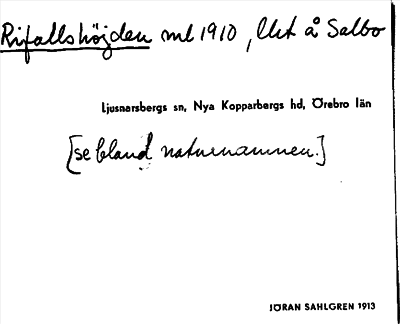 Rifallshöjden ml 1910, Utt å Salbo
Ljusnarsbergs sn, Nya Kopparbergs hd, Örebro län
[se bland naturnamnen.]
JÖRAN SAHLGREN 1913